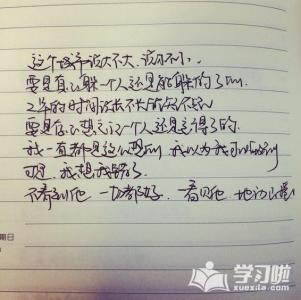 这个城市说大不大,说小不小、
要是真心躲一个人还是能躲的了的
2年的时间说长不长说短不短
要是真心想忘记一个人还是忘得了的.
我一直都是这么想的 我以为我可以做到
可是,我想我错了.
不看到他 一切都好. 看见他
学习啦
xuexila.com
期日